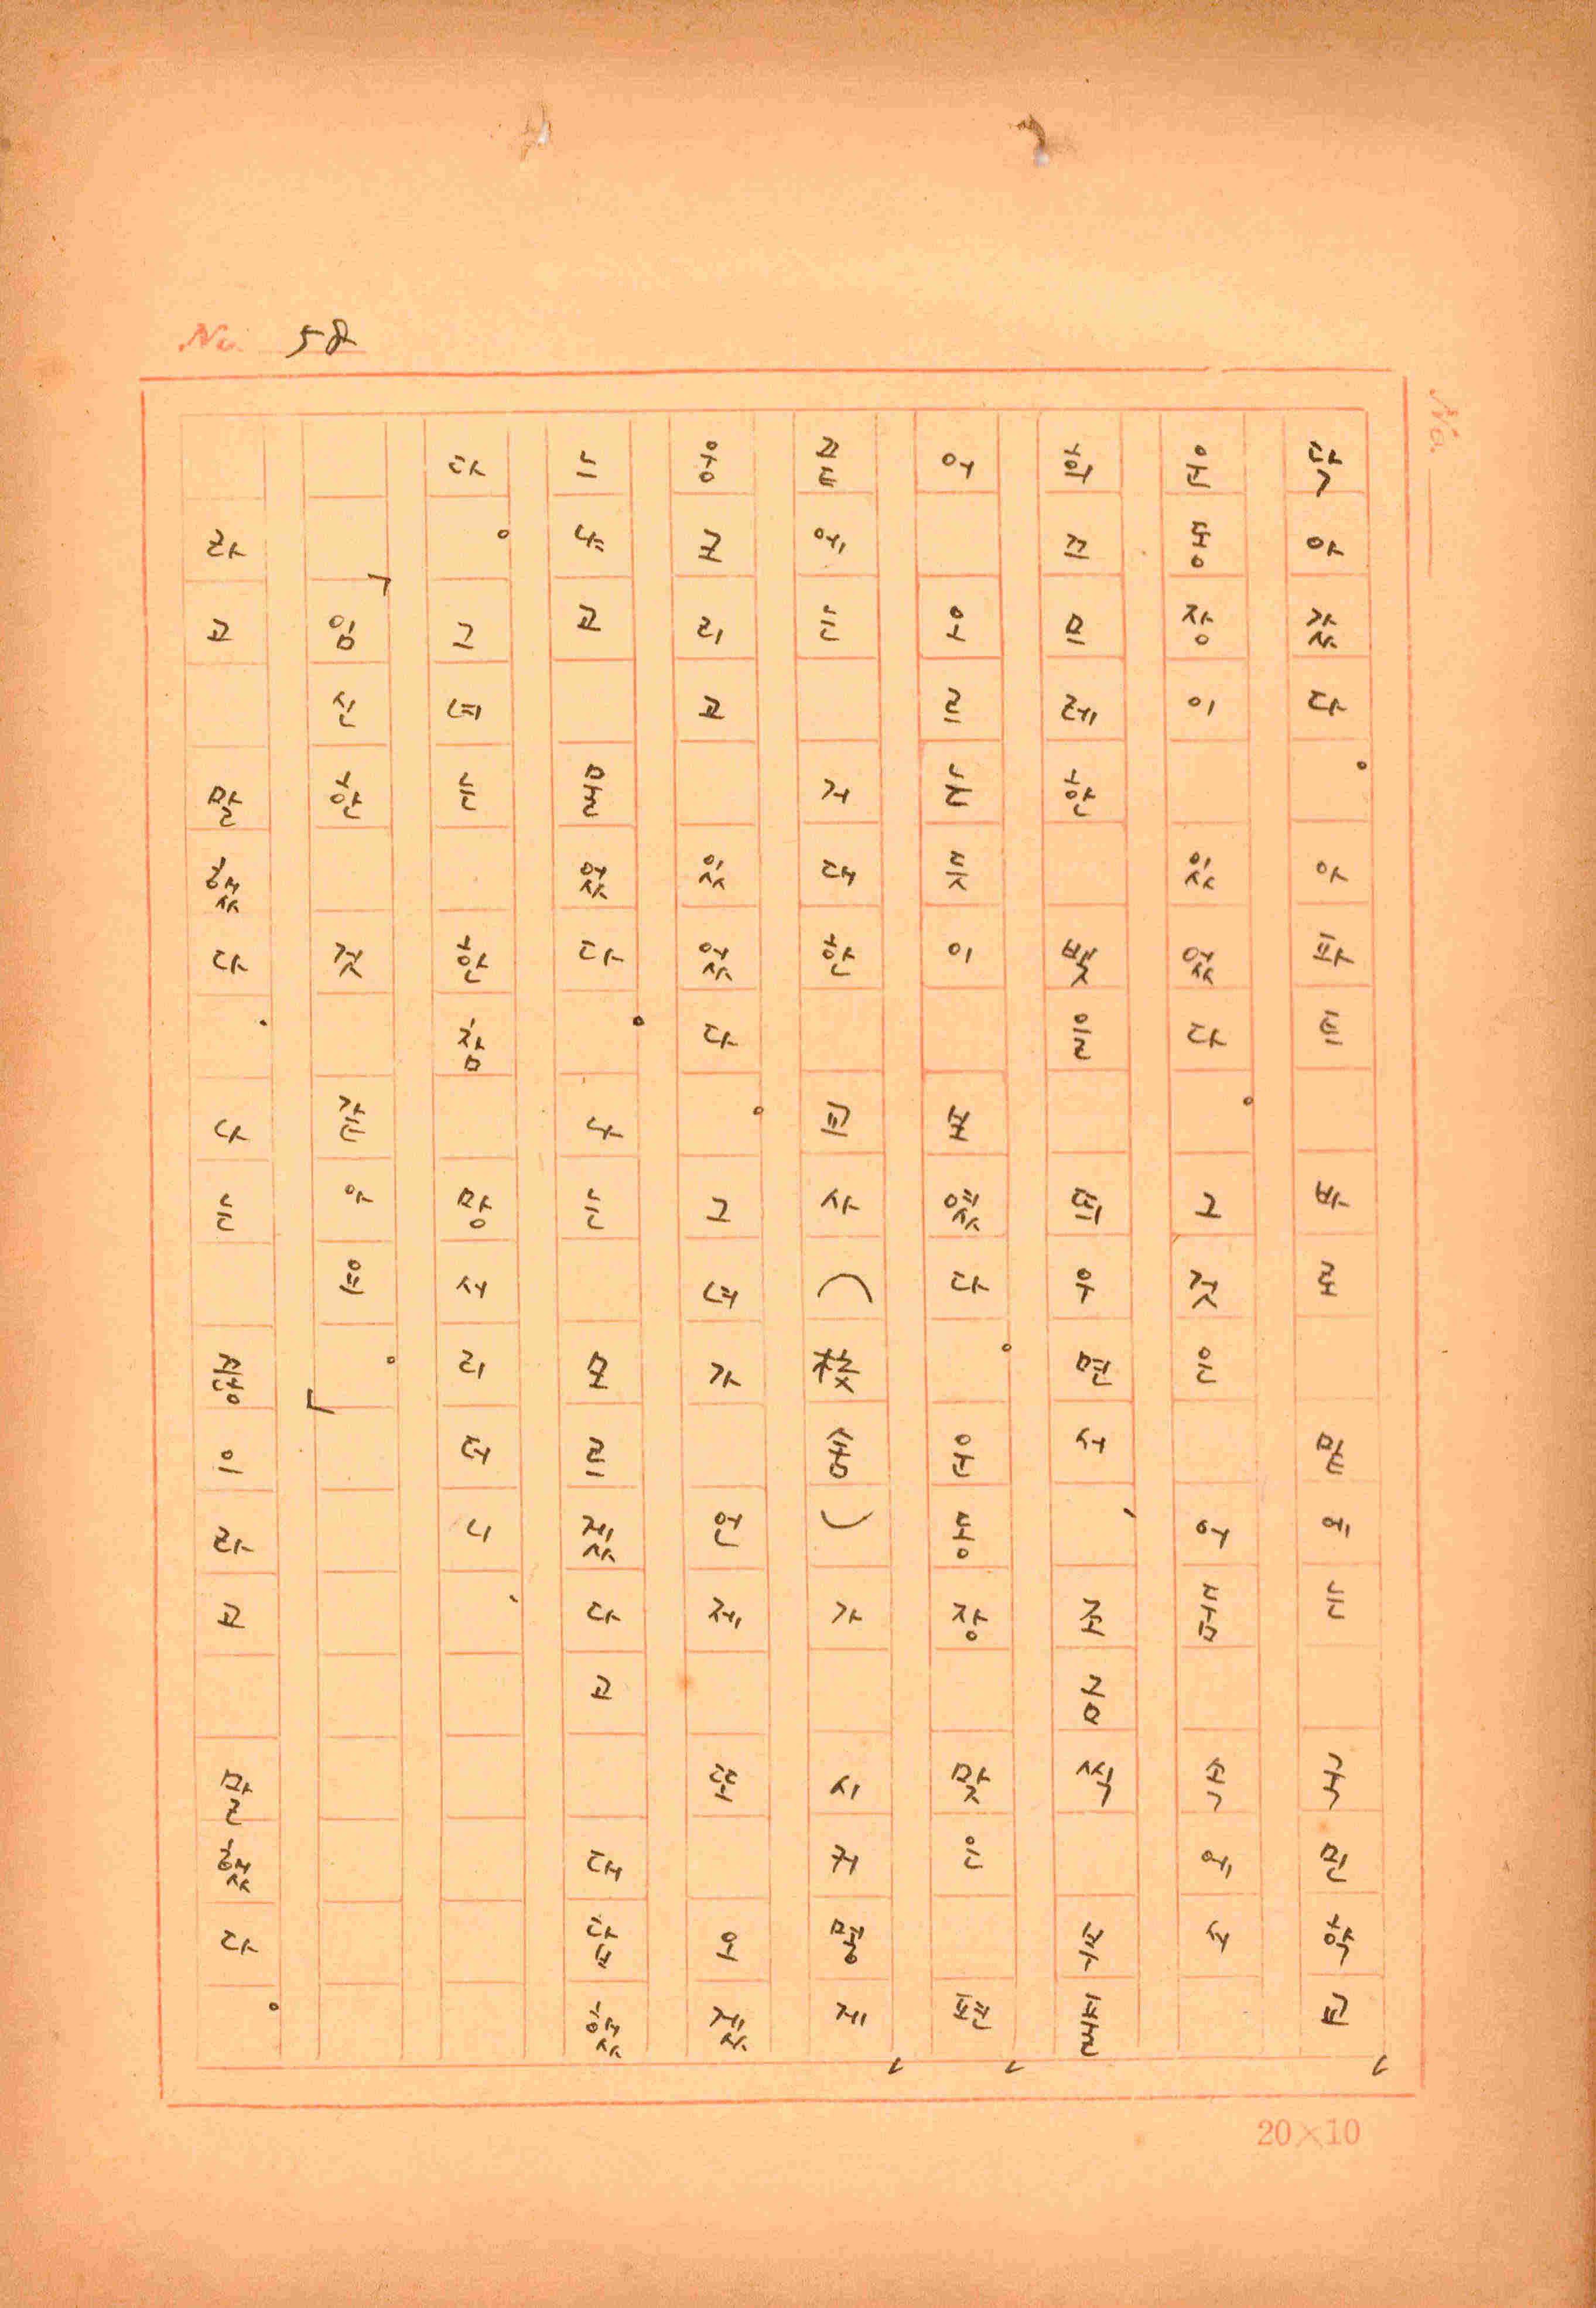 No. 58
닥아갔다。 아파트 바로 맡에는 국민학교
운동장이 있었다。 그것은 어둠 속에서
희끄므레한 빛을 띄우면서、 조금씩 부풀
어 오르는 듯이 보였다。 운동장 맞은 편
끝에는 거대한 교사(校舍)가 시커멓게
웅크리고 있었다。 그녀가 언제 또 오겠
느냐고 물었다。 나는 모르겠다고 대답했
다。 그녀는 한참 망서리더니、
「임신한 것 같아요。」
라고 말했다. 나는 말했다。
No.
20×10